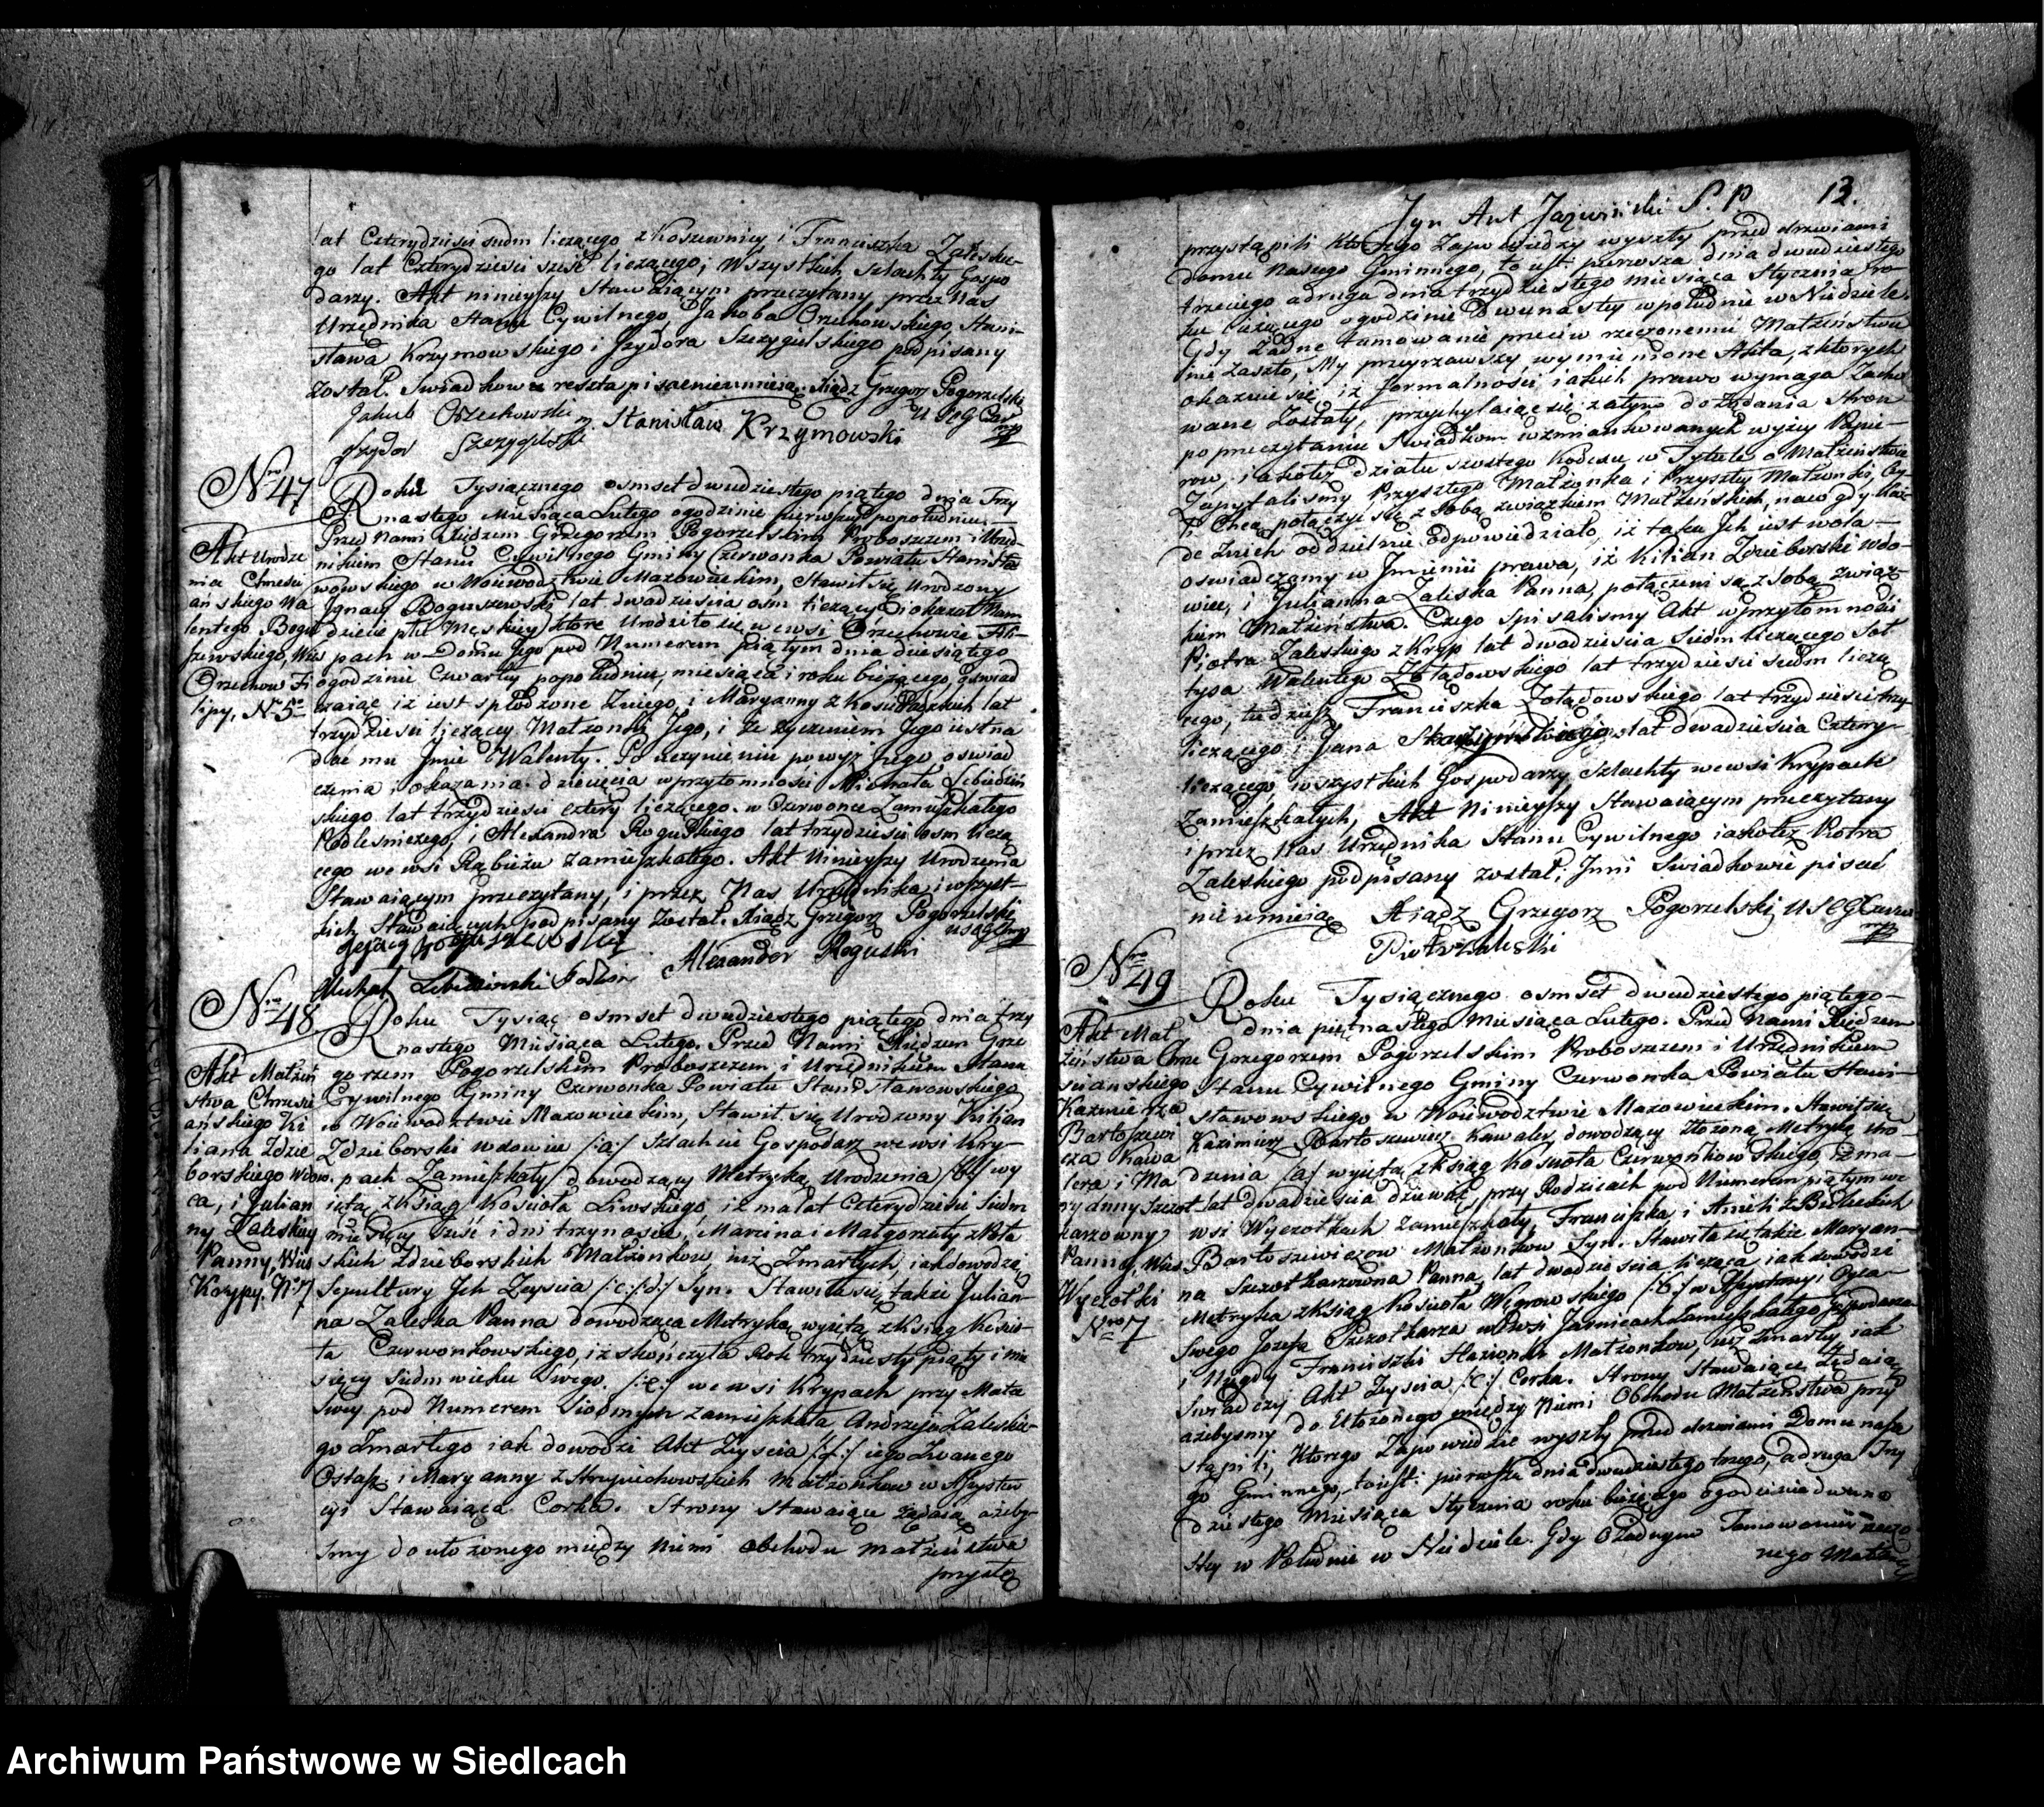 lat Czterydzieści siedm liczącego z Koszewnicy i Franciszka Zaleskie-
go lat Czterydzieści sześć liczącego; Wszystkich Szlachty Gospo
darzy. Akt ninieyszy Stawaiącym przeczytany przez Nas
Urzędnika Stanu Cywilnego Jakoba Orzchowskiego, Stani-
sława Krzymowskiego i Jzydora Szczygielskiego podpisany
został. Swiadkowie reszta pisać nieumieią. Xiądz Grzegorz Pogorzelski
Jakub Orzechowski Stanisław Krzymowski
Jzydor Szczygielski
Nro 47
Akt Urodze
nia Chrześci
ańskiego Wa
lentego Bogu
szewskiego, Wieś
Orzechow Fi
lipy, N. 5.
Roku Tysiącznego osmset dwudziestego piątego dnia Trzy
nastego Miesiąca Lutego o godzinie pierwszey popołudniu.
Przed Nami Xiędzem Grzegorzem Pogorzelskim Proboszczem i Urzęd-
nikiem Stanu Cywilnego Gminy Czerwonka Powiatu Stanisła
wowskiego w Woiewodztwie Mazowieckim, Stawił się Urodzony
Jgnacy Boguszewski lat dwadzieścia osm liczący i okazał Nam
dziecie płci Męskiey, które Urodziło się we wsi Orzechowie Fili-
pach w Domu Jego pod Numerem piątym dnia dziesiątego
o godzinie Czwartey popołudniu, miesiąca i roku bieżącego, oświad
czaiąc iż iest spłodzone z niego, i Maryanny z Kosieradzkich lat
trzydzieści liczącey Małżonki Jego, i że życzeniem Jego iest na
dać mu Jmie Walenty. Po uczynieniu powyższego oświad
czenia i okazania dziecięcia w przytomności Michała Lebiedziń
skiego lat trzydzieści cztery liczącego w Czerwonce Zamieszkałego
Podleśniczego, i Alexandra Roguskiego lat trzydzieści osm liczą
cego we wsi Rąbieżu zamieszkałego. Akt Ninieyszy Urodzenia
Stawaiącym przeczytany, i przez Nas Urzędnika i wszyst-
kich Stawaiących podpisany został. Xiądz Grzegorz Pogorzelski
Alexander Roguski
Michał Lebiedzinski
Nro 48
Akt Małżeń
stwa Chrześci
ańskiego Ki
liana Zdzie
borskiego Wdow
ca, i Julian
ny Zaleskiey
Panny, Wieś
Krypy, N. 7
Roku Tysiąc osmset dwudziestego piątego dnia trzy
nastego Miesiąca Lutego. Przed Nami Xiędzem Grze
gorzem Pogorzelskim Proboszczem i Urzędnikiem Stanu
Cywilnego Gminy Czerwonka Powiatu Stanisławowskiego
w Woiewodztwie Mazowieckim, Stawił się Urodzony Kilian
Zdzieborski wdowiec /:a:/ Szlachcic Gospodarz we wsi Kry-
pach Zamieszkały, dowodzący Metryką Urodzenia /:b:/ wy
iętą z Ksiąg Kościoła Liwskiego, iż ma lat Czterydzieści siedm
miesięcy sześć i dni trzynaście, Marcina i Małgorzaty z
skich Zdzieborskich Małżonków, iuż Zmarłych, iak dowodzą
Sepultury Jch Zeyscia /:c:/:d:/ Syn. Stawiła się także Julian-
na Zaleska Panna dowodząca Metryką wyiętą z Ksiąg Kościo-
ła Czerwonkowskiego, iż skończyła Rok trzydziesty piąty i mie
sięcy siedm wieku Swego /:e:/ we wsi Krypach przy Matce
Swey pod Numerem Siodmym zamieszkała Andrzeja Zaleskie-
go Zmarłego iak dowodzi Akt Zeyscia /:f:/ iego Zwanego
Ostap: i Maryanny z Małżonków w Assysten
cyi Stawaiąca Corka. Strony stawaiące żądaią ażeby-
śmy do ułożonego między niemi obchodu małżeństwa
przystą
Jgn Ant Jażwinski S. P. 13.
przystąpili którego Zapowiedzi wyszły przed drzwiami
domu Naszego Gminnego, to iest: pierwsza dnia dwudziestego
trzeciego a druga dnia trzydziestego miesiąca Stycznia ro-
ku bieżącego o godzinie Dwunastey w południe w Niedziele.
Gdy żadne tamowanie przeciw rzeczonemu Małżeństwu
nie zaszło, My przeyrzawszy wymienione Akta, z których
okazuie się iż formalności iakich prawo wymaga Zacho
wane Zostały, przychylaiąc się zatym do żądania Stron
po przeczytaniu Swiadkom wzmiankowanych wyżey Papie-
row, iakoteż działu szostego Kodexu w Tytule o Małżeństwie
Zapytaliśmy Przyszłego Małżonka i Przyszłey Małżonki, Czy-
li Chcą połączyć się z sobą związkiem Małżeńskim, na co gdy każ
de z nich oddzielnie odpowiedziało, iż taka Jch iest wola-
oświadczamy w Jmieniu prawa, iż Kilian Zdzieborski Wdo-
wiec, i Julianna Zaleska Panna, połączeni są z sobą związ
kiem Małżeństwa. Czego spisaliśmy Akt w przytomności
Piotra Zaleskiego z Kryp lat dwadzieścia siedm liczącego Soł
tysa Walentego Zołądowskiego lat trzydzieści siedm liczą
cego, tudzież Franciszka Zołądowskiego lat trzydzieści trzy
liczącego i Jana lat dwadzieścia Cztery-
liczącego wszystkich Gospodarzy Szlachty we wsi Krypach
Zamieszkałych, Akt Ninieyszy Stawaiącym przeczytany
i przez Nas Urzędnika Stanu Cywilnego iakoteż Piotra
Zaleskiego podpisany został; Jnni Swiadkowie pisać
nieumieią Xiądz Grzegorz Pogorzelski
Piotr Zaleski
Nro 49
Akt Mał
żeństwa Chrze
ściańskiego
Kazimierza
Bartoszewi
cza Kawa
lera i Ma
ryanny Szczot
karzowny
Panny, Wieś
Wyczołki
Nro 7
Roku Tysiącznego osmset dwudziestego piątego-
dnia piętnastego Miesiąca Lutego. Przed Nami Xiędzem
Grzegorzem Pogorzelskim Proboszczem i Urzędnikiem
Stanu Cywilnego Gminy Czerwonka Powiatu Stani-
sławowskiego w Woiewodztwie Mazowieckim. Stawił się
Kazimierz Bartoszewicz Kawaler, dowodzący złożoną Metryką Uro-
dzenia /:a:/ wyiętą z Ksiąg Kościoła Czerwonkowskiego, iż ma-
lat dwadzieścia dziewięć, przy Rodzicach pod Numerem piątym we
wsi Wyczołkach zamieszkały, Franciszka i Anieli z Bielickich
Bartoszewiczow Małżonkow Syn. Stawiła się także Maryan-
na Szczotkarzowna Panna, lat dwadzieścia licząca iak dowodzi
Metryka z Ksiąg Kościoła Węgrowskiego /:b:/ w Assystencyi Oyca-
Swego Jozefa Szczotkarza we Wsi Jarnicach Zamieszkałego Gospodarza
i Niegdy Franciszki Małżonkow, iuż Zmarłey iak
świadczy Akt Zeyscia /:c:/ Corka. Strony Stawaiące Żądaią
ażebyśmy do Ułożonego między Niemi Obchodu Małżeństwa przy
stąpili, którego Zapowiedzie wyszły przed drzwiami Domu nasze
go Gminnego, to iest: pierwsza dnia dwudziestego trzego, a druga Trzy
dziestego Miesiąca Stycznia roku bieżącego o godzinie dwuna
stey w Południe w Niedziele. Gdy o żadnym Tamowaniu rzeczo
nego Małżeń